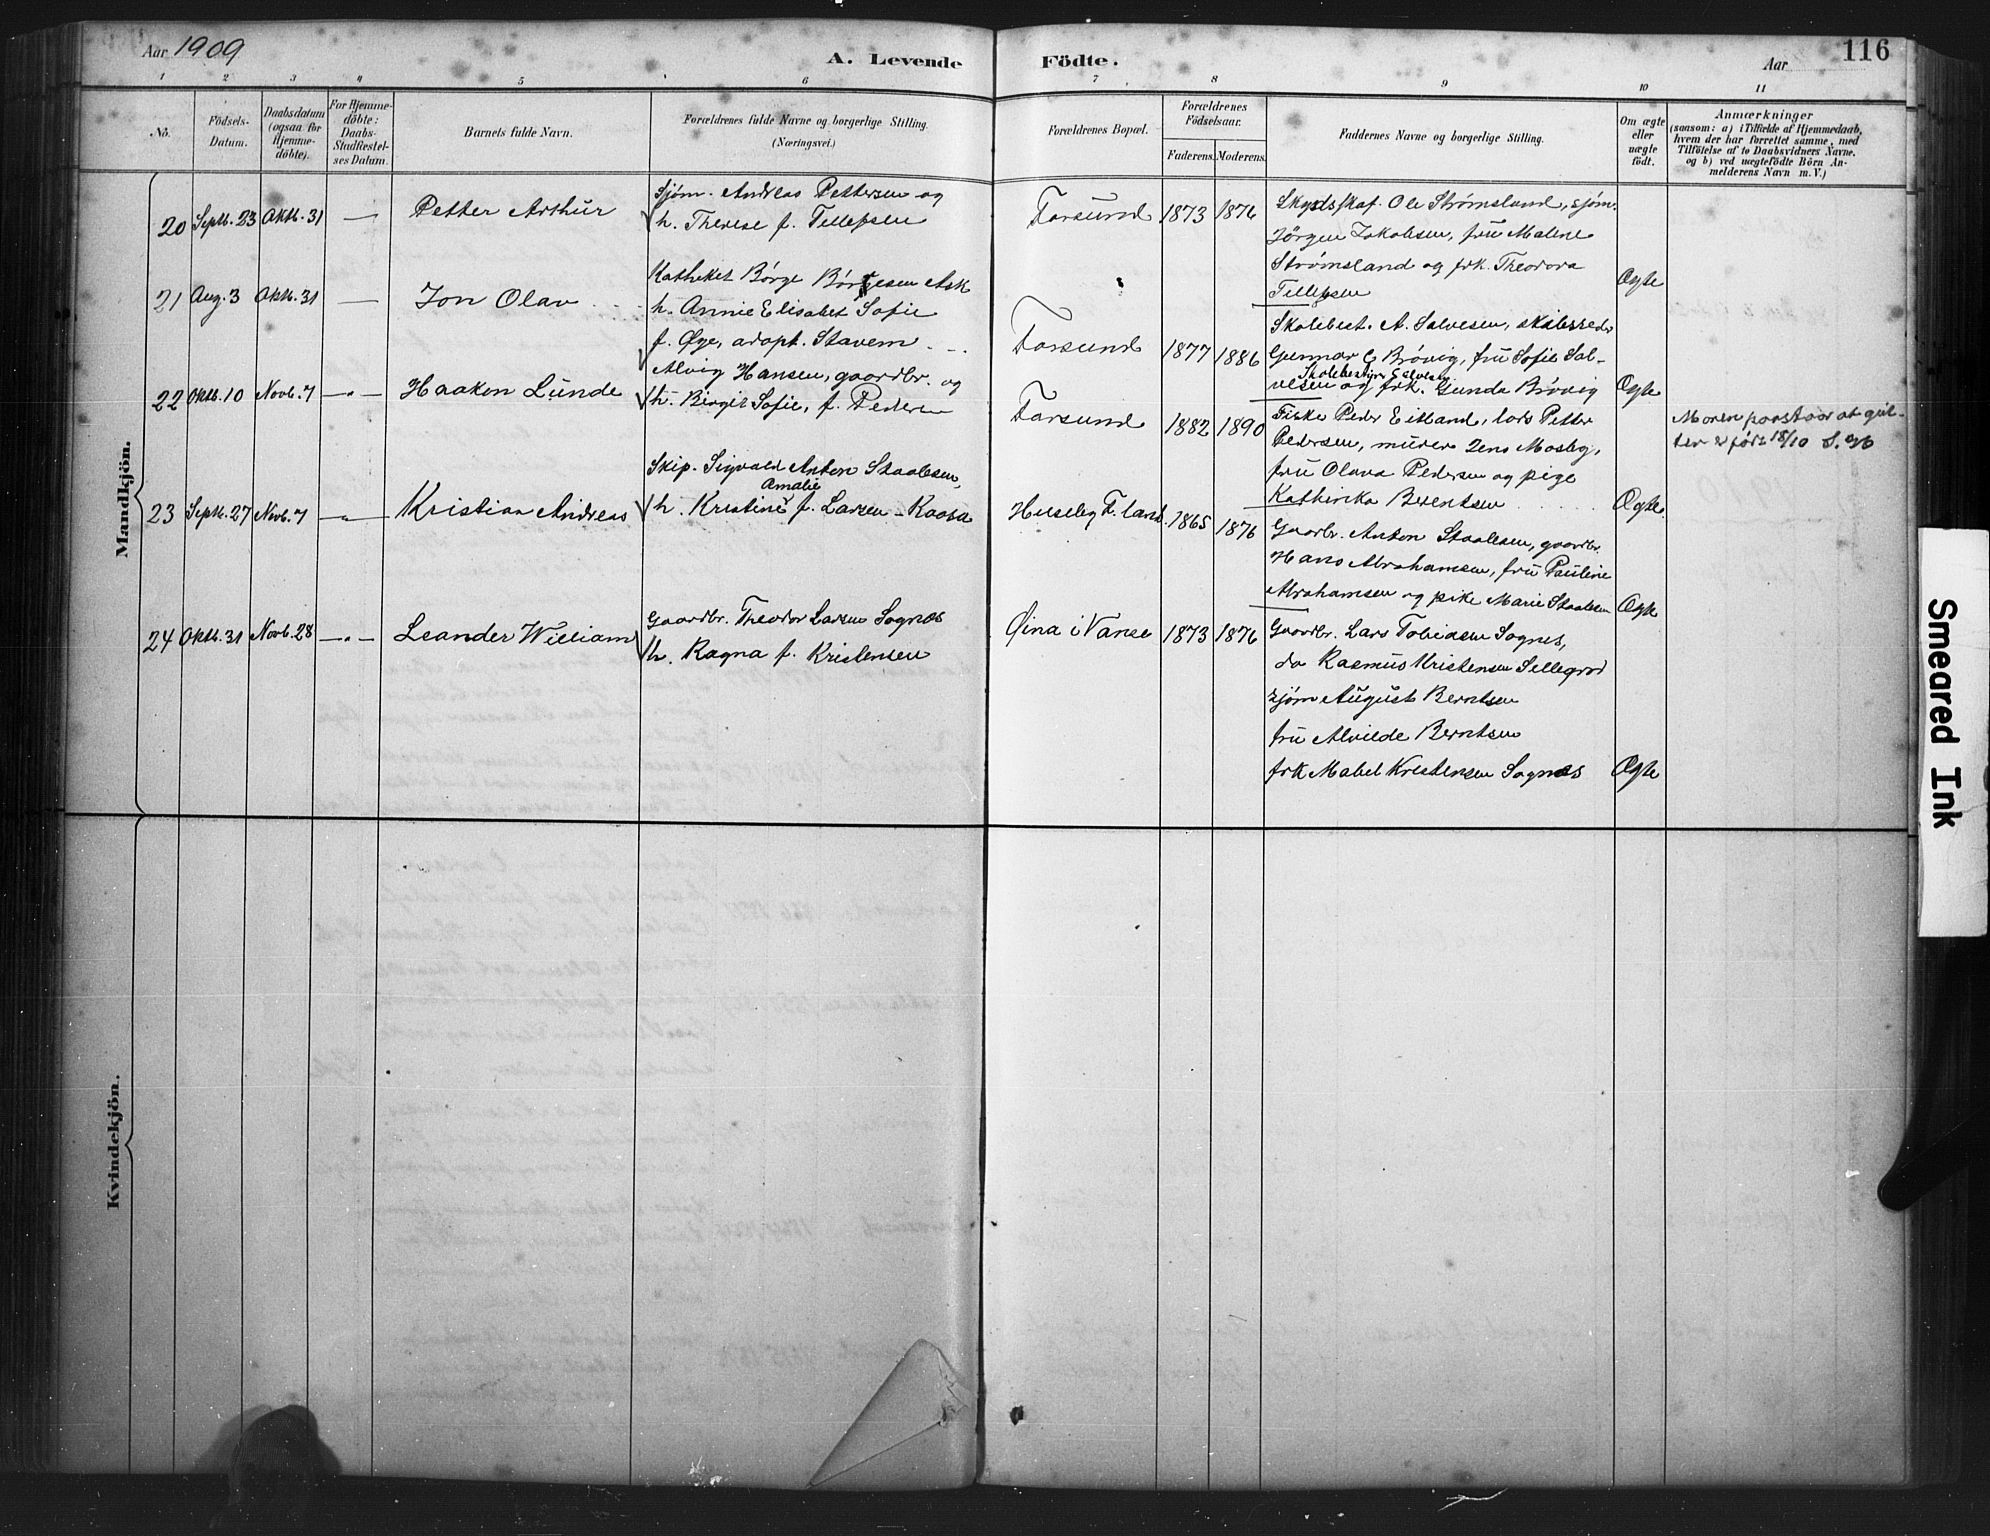 Aar 1909
A. Levende Födte.
Aar
116
1 2 3 4 5 6 7 8 9 10 11
No.
Födsels-
Datum.
Daabsdatum
(ogsaa for
Hjemme-
döbte).
For Hjemme-
döbte:
Daabs-
Stadfæstel-
ses Datum.
Barnets fulde Navn.
Forældrenes fulde Navne og borgerlige Stilling.
(Næringsvei.)
Forældrenes Bopæl.
Forældrenes
Födselsaar.
Faderens. Moderens.
Faddernes Navne og borgerlige Stilling.
Om ægte
eller
uægte
födt.
Anmærkninger
(saasom: a) i Tilfælde af Hjemmedaab,
hvem der har forrettet samme, med
Tilföielse af to Daabsvidners Navne.
og b) ved uægtefödte Börn An-
melderens Navn m. V.)
Mandkjön.
20 Septb. 23 Oktb. 31 — Petter Arthur
Sjøm. Andreas Pettersen og
h. Therese f. Tellefsen
Farsund 1873 1876
Skydsskaf. Ole Strømsland, sjøm.
Jörgen Jakobsen, fru Malene
Strömsland og frk. Theodora
Tellefsen
Ægte
21 Aug. 3 Oktb. 31 — Jon Olav
Katheket Börge Börgesen Ask
h. Annie Elisabet Sofie
f. Øye, adopt. Stavem
Farsund 1877 1886
Skolebest. A. Salvesen, skibsreder
Gunnar C Brövig, fru Sofie Sal-
vesen og frk. Gunda Brövig
Ægte
22 Oktb. 10 Novb. 7 —„— Haakon Lunde
Alvig Hansen, gaardbr. og
h. Birgit Sofie, f. Pedersen
Farsund 1882 1890
Fisker Peder Eitland, lods Petter
Pedersen, murer Jens Mosby,
fru Olava Pedersen og pige
Kathinka Berentsen
Ægte.
Moren paastaar at gut-
ten er født 18/10
23 Septb. 27 Novb. 7 —„— Kristian Andreas
Skip. Sigvald Anton Staalesen,
Amalie
h. Kristine f. Larsen - Kaasa
Huseby F. land. 1865 1876
Gaardbr. Anton Staalesen, gaardbr.
Hans Abrahamsen, fru Pauline
Abrahamsen og pike Marie Staalesen
Ægte
24 Oktb. 31 Novb. 28 —„— Leander William
Gaardbr. Theodor Larsen Sognes
h. Ragna f. Kristensen
Øina i Vanse 1873 1876
Gaardbr. Lars Tobiasen Sognes,
do Rasmus Kristensen Sellegrod
sjøm August Berntsen
fru Alvilde Berntsen
frk Mabel Kristensen Sognes
Ægte
Kvindekjön.
Smeared Ink